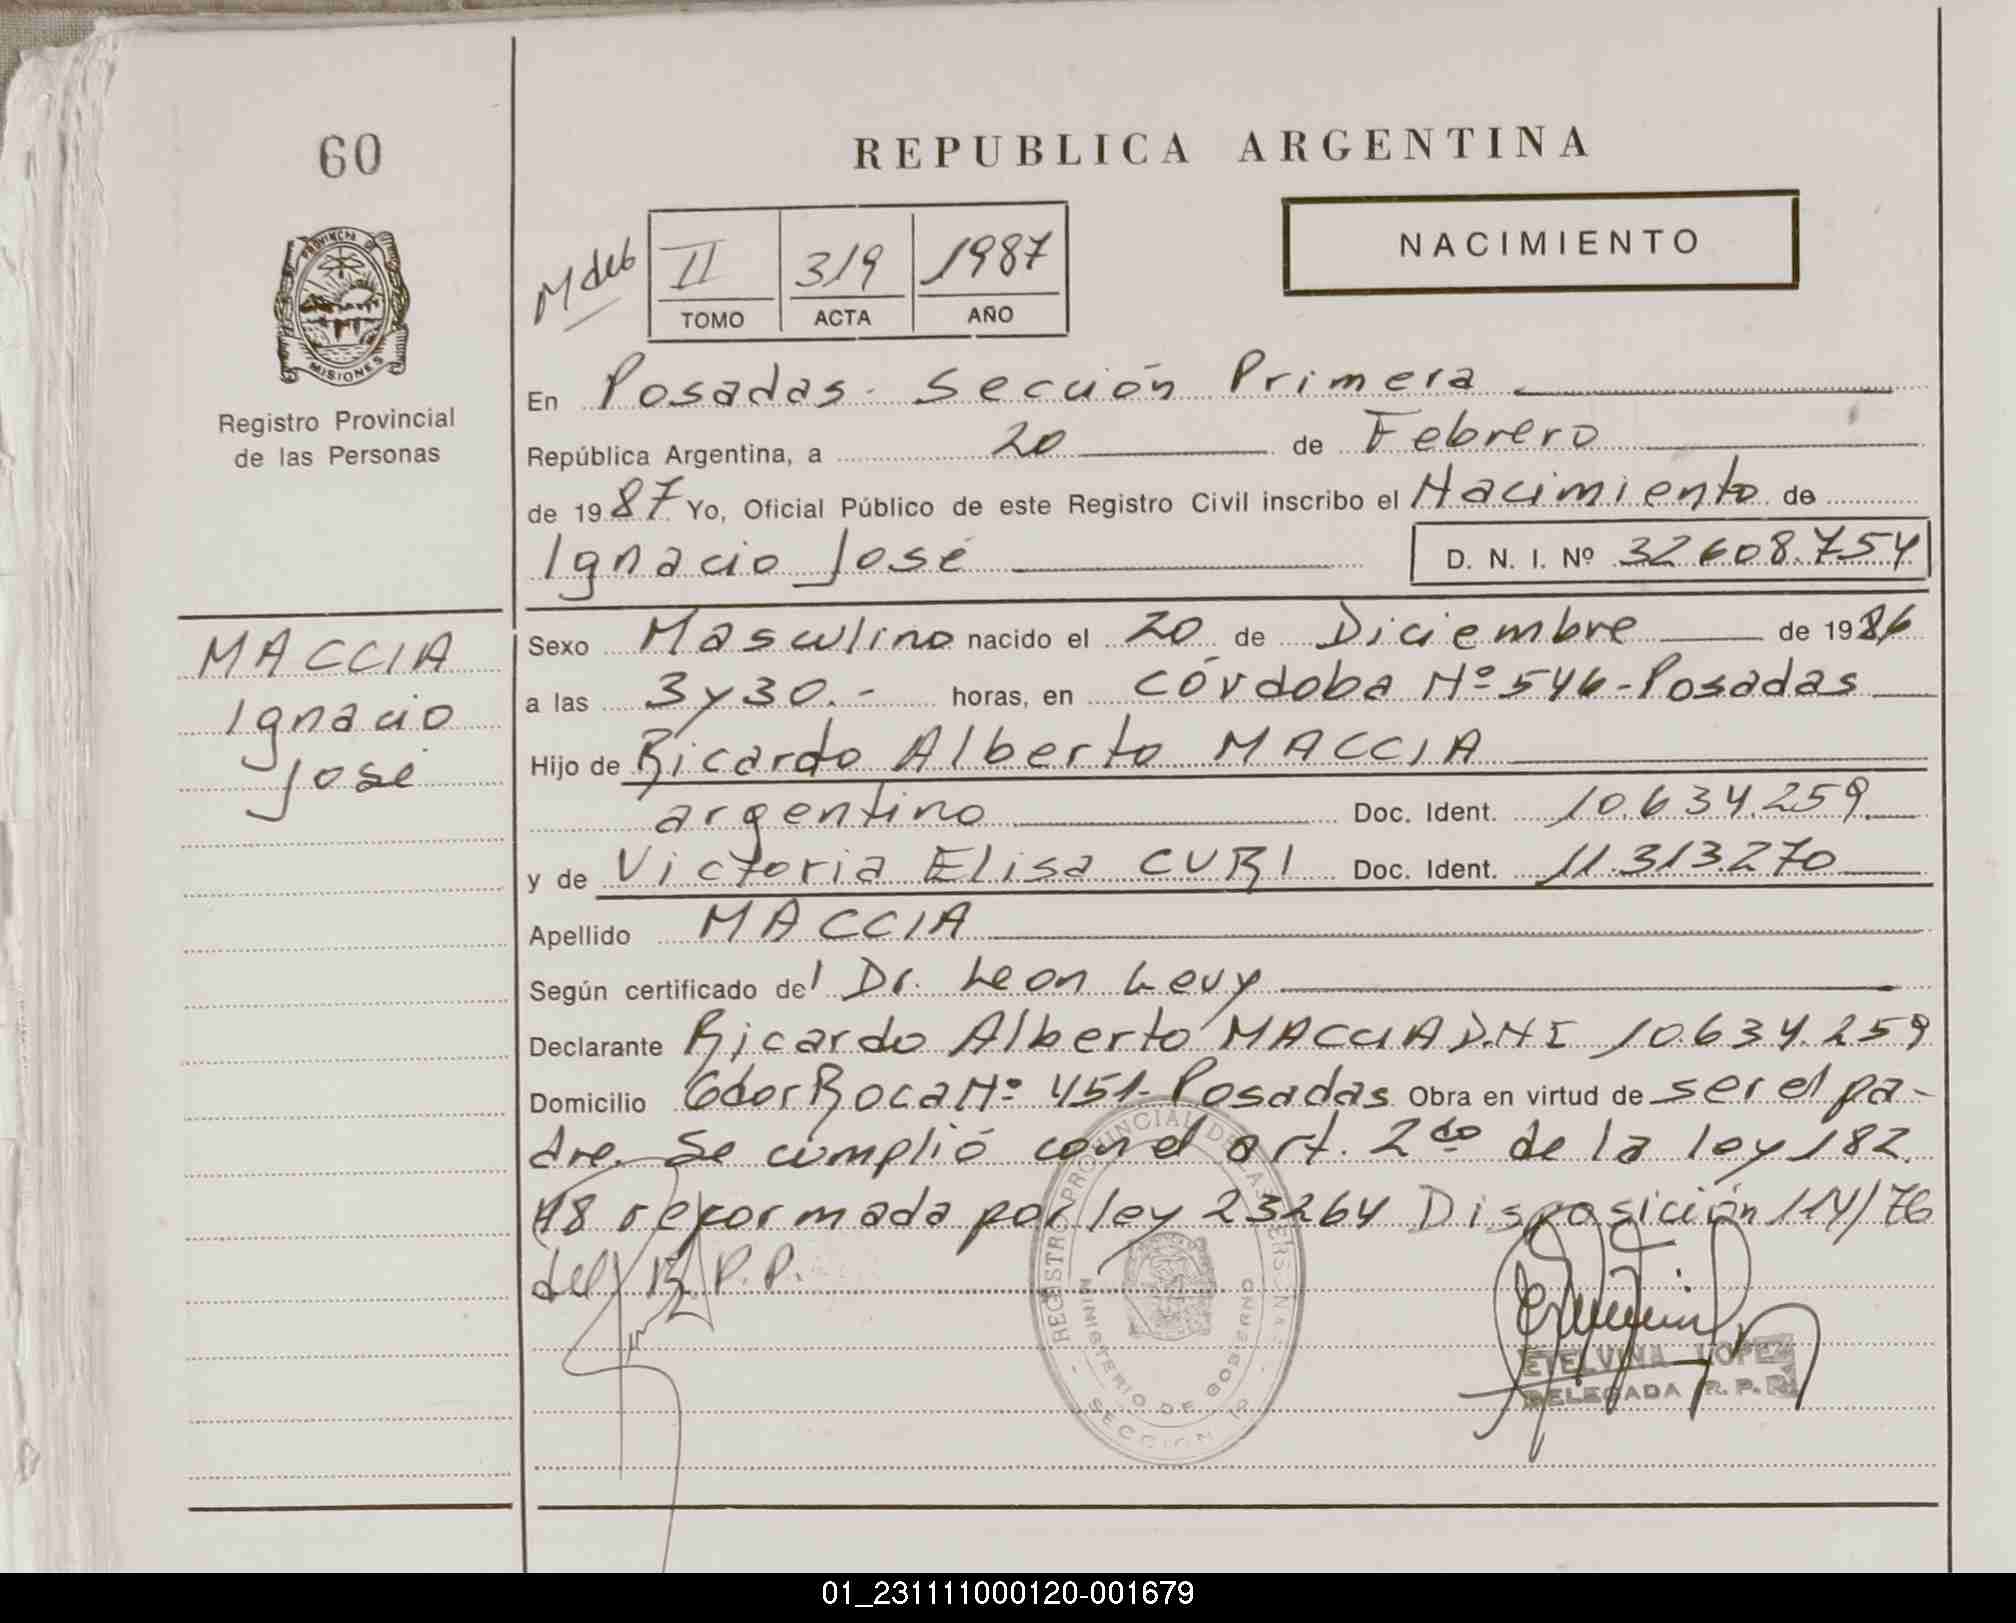 60
REPUBLICA ARGENTINA
NACIMIENTO
M deb
II 319 1987
TOMO ACTA AÑO
PROVINCIA DE
MISIONES
Registro Provincial
de las Personas
En Posadas - Sección Primera
República Argentina, a 20 de Febrero
de 1987 Yo, Oficial Público de este Registro Civil inscribo el Nacimiento de
Ignacio José D. N. I. Nº 32608.754
MACCIA
Ignacio
José
Sexo Masculino nacido el 20 de Diciembre de 1986
a las 3 y 30.- horas, en Córdoba Nº 546-Posadas
Hijo de Ricardo Alberto MACCIA
argentino Doc. Ident. 10.634.259
y de Victoria Elisa CURI Doc. Ident. 11.313.270
Apellido MACCIA
Según certificado del Dr. Leon Levy
Declarante Ricardo Alberto MACCIA D.N.I 10.634.259
Domicilio Roca Nº 451-Posadas Obra en virtud de ser el pa-
dre. Se cumplió con el art. 2do de la ley 182
48 reformada por ley 23264 Disposición 114/76
del R.P.P.
REGISTRO PROVINCIAL DE LAS PERSONAS
MINISTERIO DE GOBIERNO
SECCION 1ª
ETELVINA LOPEZ
DELEGADA R. P. P.
01_231111000120-001679